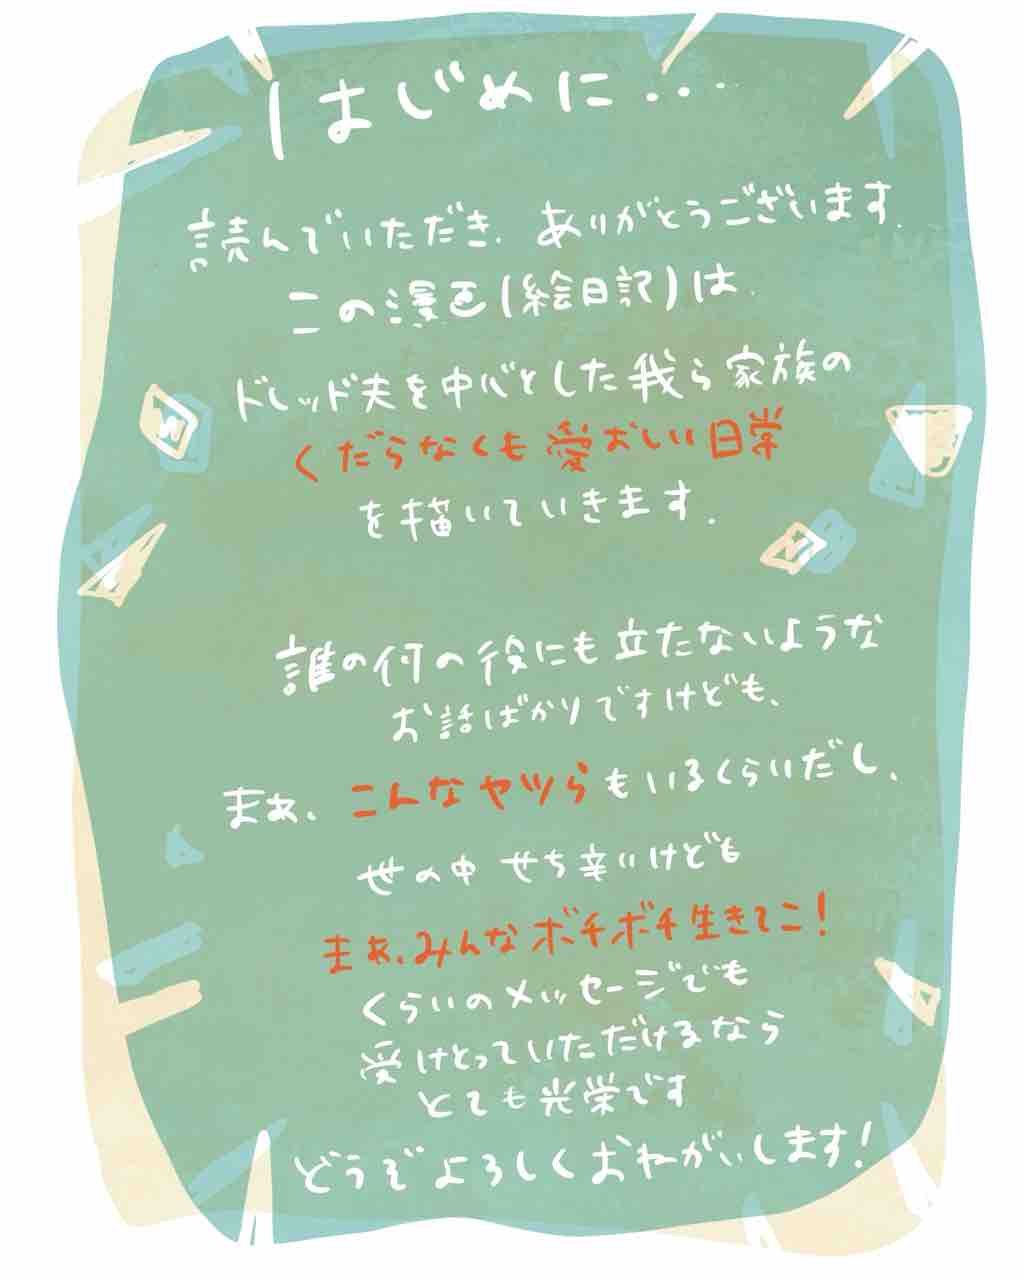 はじめに...
読んでいただき、ありがとうございます。
この漫画(絵日記)は、
ドレッド夫を中心とした我ら家族の
くだらなくも愛おしい日常
を描いていきます。
誰の何の役にも立たないような
お話ばかりですけども、
まぁ、こんなヤツらもいるくらいだし、
世の中せち辛いけども
まぁ、みんなボチボチ生きてこ!
くらいのメッセージでも
受けとっていただけるなら
とても光栄です
どうぞよろしくおねがいします!